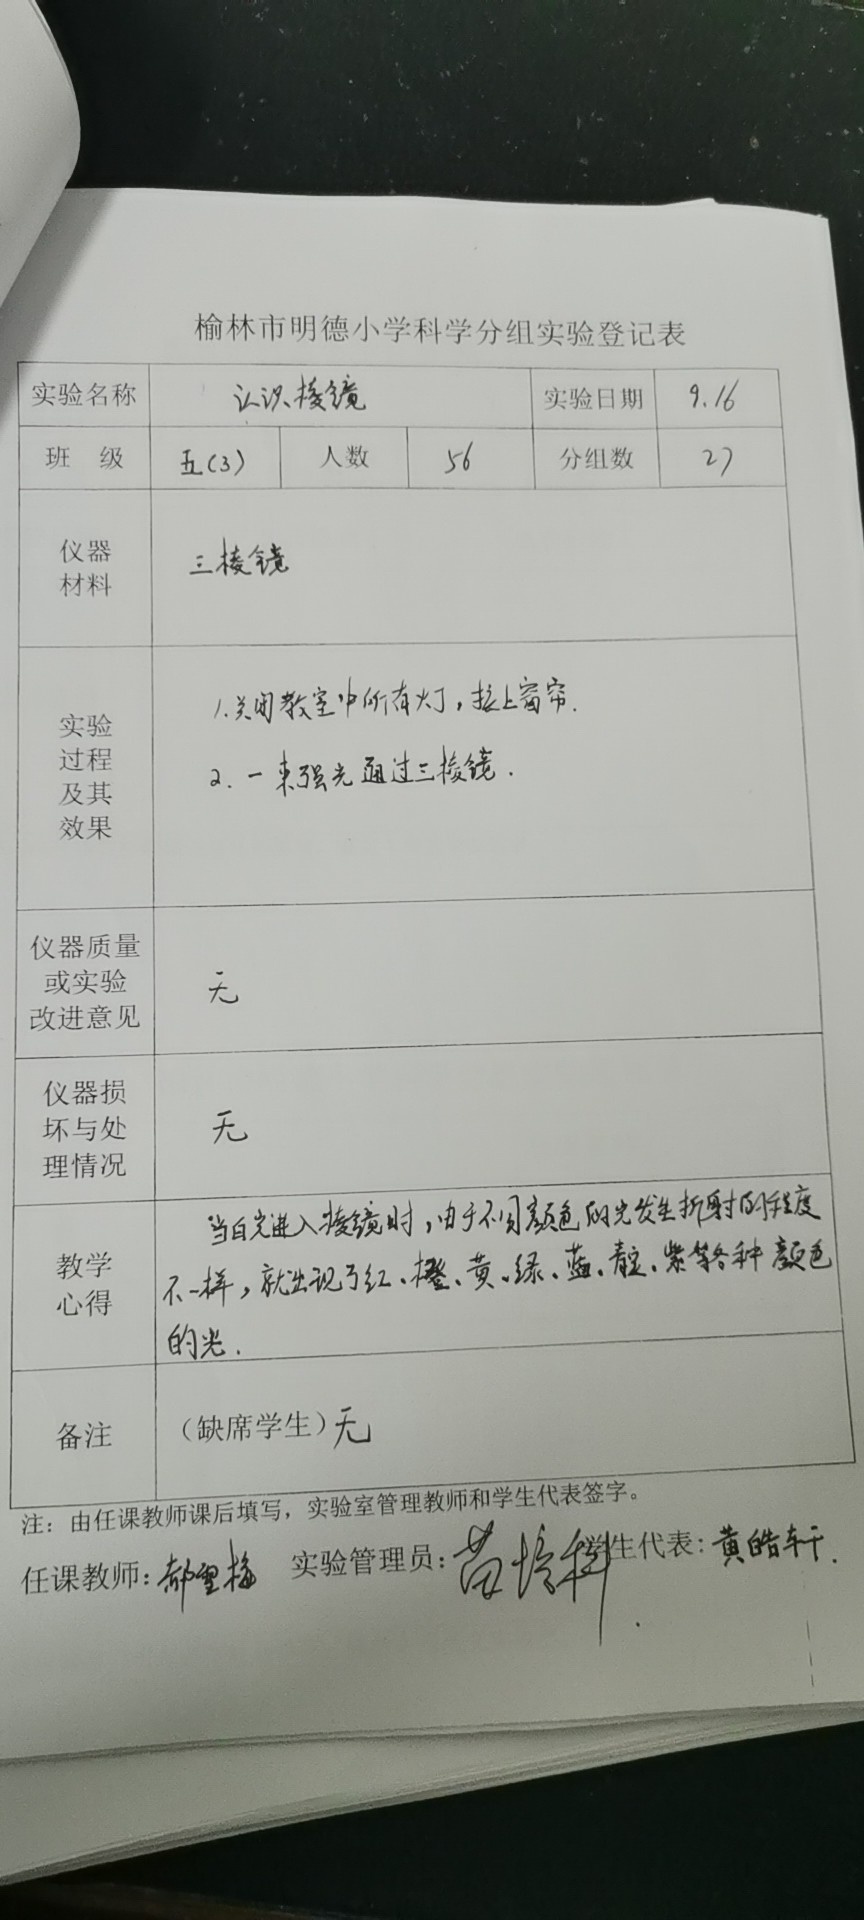 榆林市明德小学科学分组实验登记表
实验名称 认识棱镜 实验日期 9.16
班 级 五(3) 人数 56 分组数 27
仪器
材料
三棱镜
实验
过程
及其
效果
1.关闭教室中所有灯，拉上窗帘.
2.一束强光通过三棱镜.
仪器质量
或实验
改进意见
无
仪器损
坏与处
理情况
无
教学
心得
当白光进入棱镜时，由于不同颜色的光发生折射的程度
不一样，就出现了红、橙、黄、绿、蓝、靛、紫等各种颜色
的光.
备注 （缺席学生）无
注：由任课教师课后填写，实验室管理教师和学生代表签字。
任课教师：郝雪梅 实验管理员：苗培 学生代表：黄皓轩.